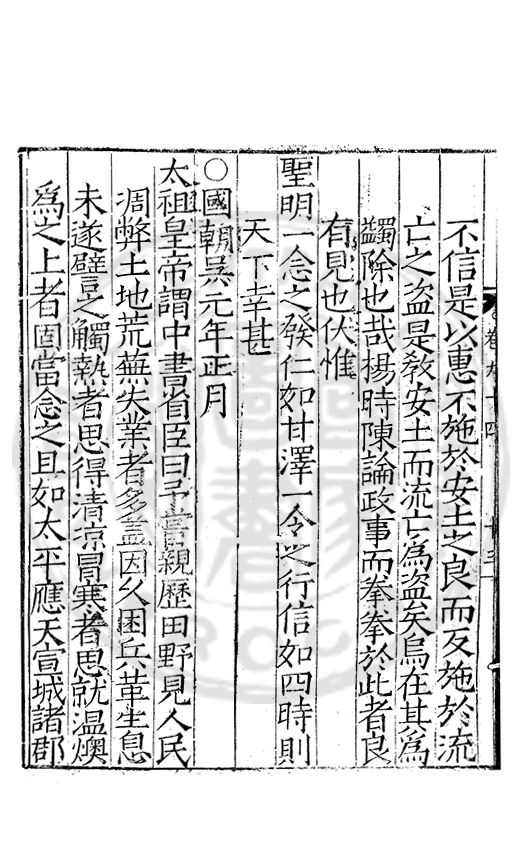 卷九十四
不信是以惠不施於安土之良而反施於流
亡之盜是敎安土而流亡為盜矣烏在其為
蠲除也哉楊時陳論政事而拳拳於此者良
有見也伏惟
聖明一念之發仁如甘澤一令之行信如四時則
天下幸甚
○國朝吳元年正月
太祖皇帝謂中書省臣曰予嘗親歷田野見人民
凋弊土地荒蕪失業者多盖因久困兵革生息
未遂譬之觸熱者思得清凉冒寒者思就温燠
爲之上者固當念之且如太平應天宣城諸郡